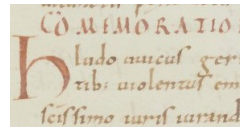 COMEMORATIO
hludouuicus ger
tib; uiolentus em
scissimo iuris iurand